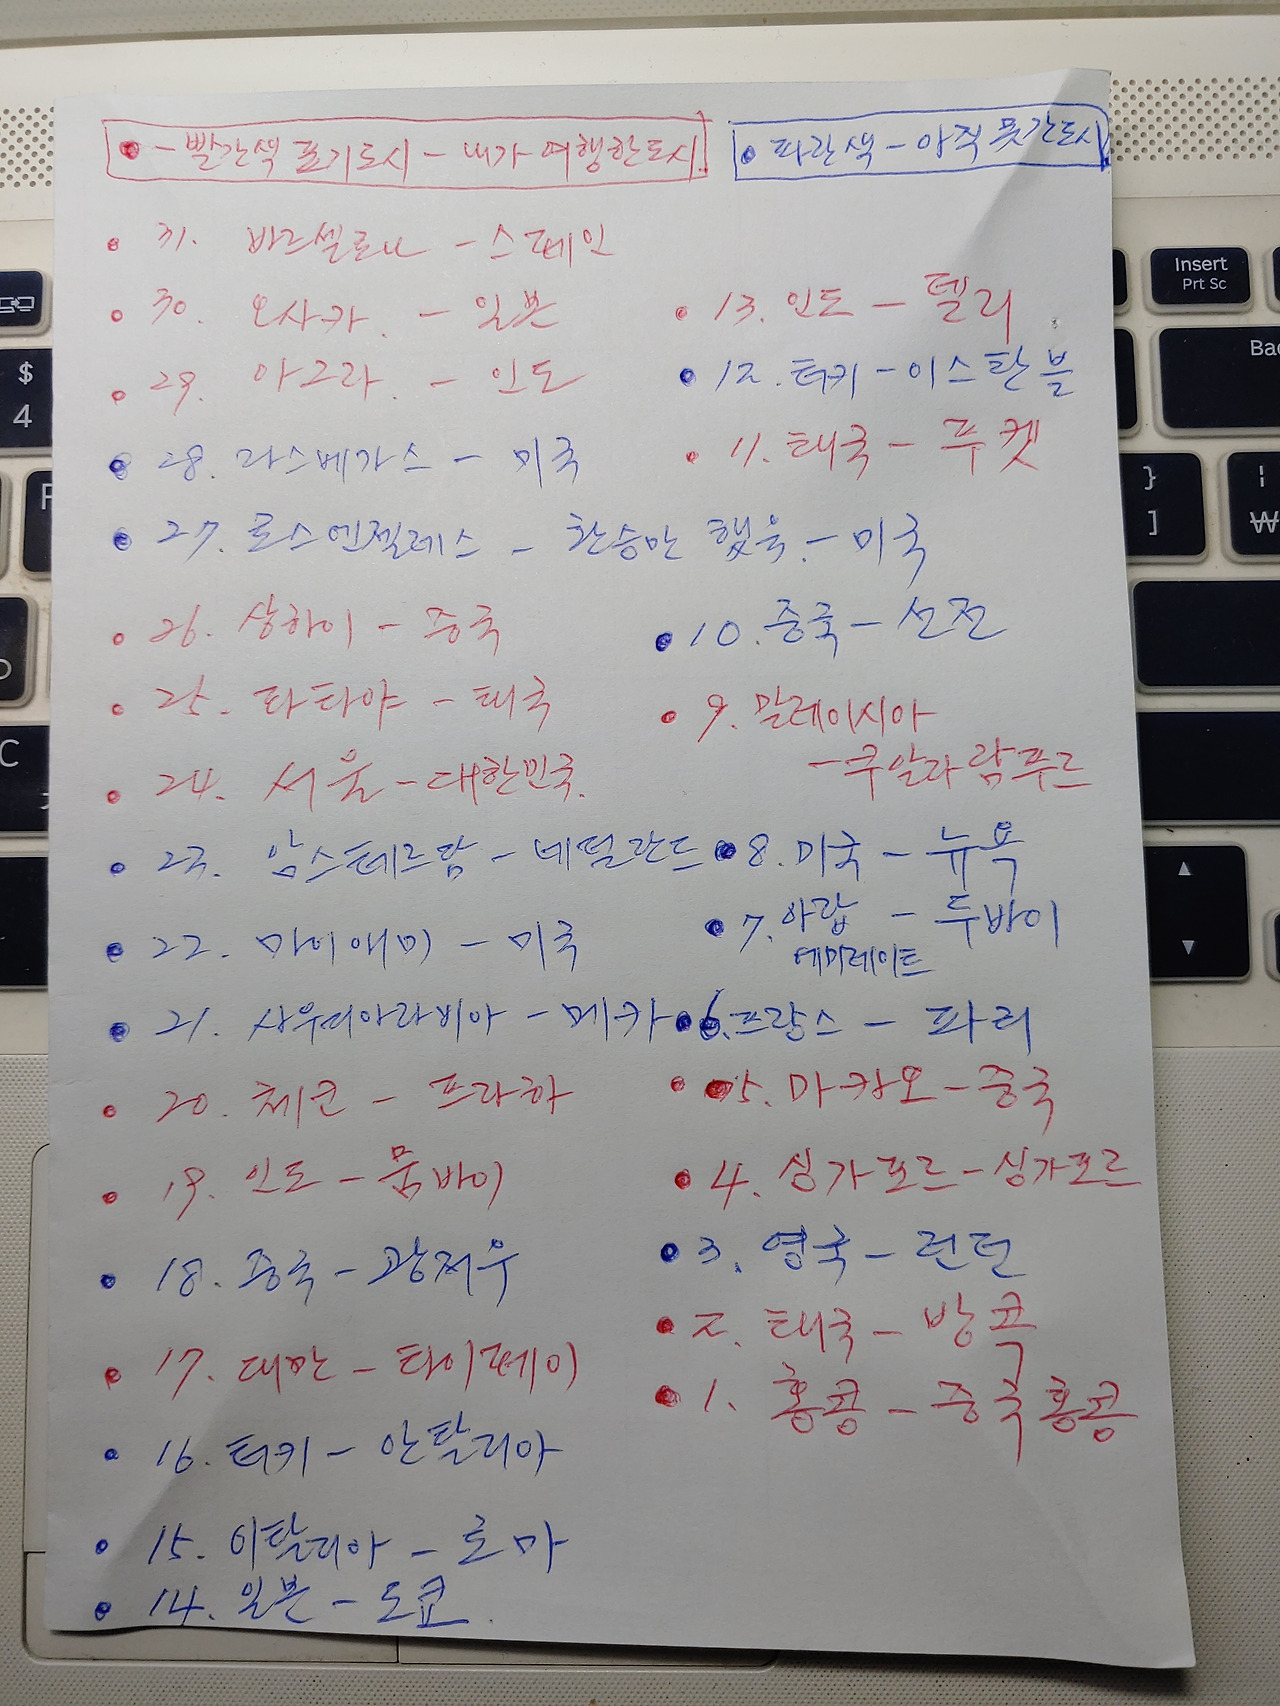 • - 빨간색 표기도시 - 내가 여행한도시
• 파란색 - 아직 못간도시
• 31. 바르셀로나 - 스페인
• 30. 오사카. - 일본
• 29. 아그라. - 인도
• 28. 라스베가스 - 미국
• 27. 로스엔젤레스 - 환승만 했음. - 미국
• 26. 상하이 - 중국
• 25. 파타야 - 태국
• 24. 서울 - 대한민국.
• 23. 암스테르담 - 네덜란드
• 22. 마이애미 - 미국
• 21. 사우디아라비아 - 메카
• 20. 체코 - 프라하
• 19. 인도 - 뭄바이
• 18. 중국 - 광저우
• 17. 대만 - 타이페이
• 16. 터키 - 안탈리아
• 15. 이탈리아 - 로마
• 14. 일본 - 도쿄.
• 13. 인도 - 델리
• 12. 터키 - 이스탄불
• 11. 태국 - 푸켓
• 10. 중국 - 선전
• 9. 말레이시아
- 쿠알라람푸르
• 8. 미국 - 뉴욕
• 7. 아랍 - 두바이
에미레이트
• 6. 프랑스 - 파리
• 5. 마카오 - 중국
• 4. 싱가포르 - 싱가포르
• 3. 영국 - 런던
• 2. 태국 - 방콕
• 1. 홍콩 - 중국 홍콩
Insert
Prt Sc
Bac
$
4
}
]
₩
C